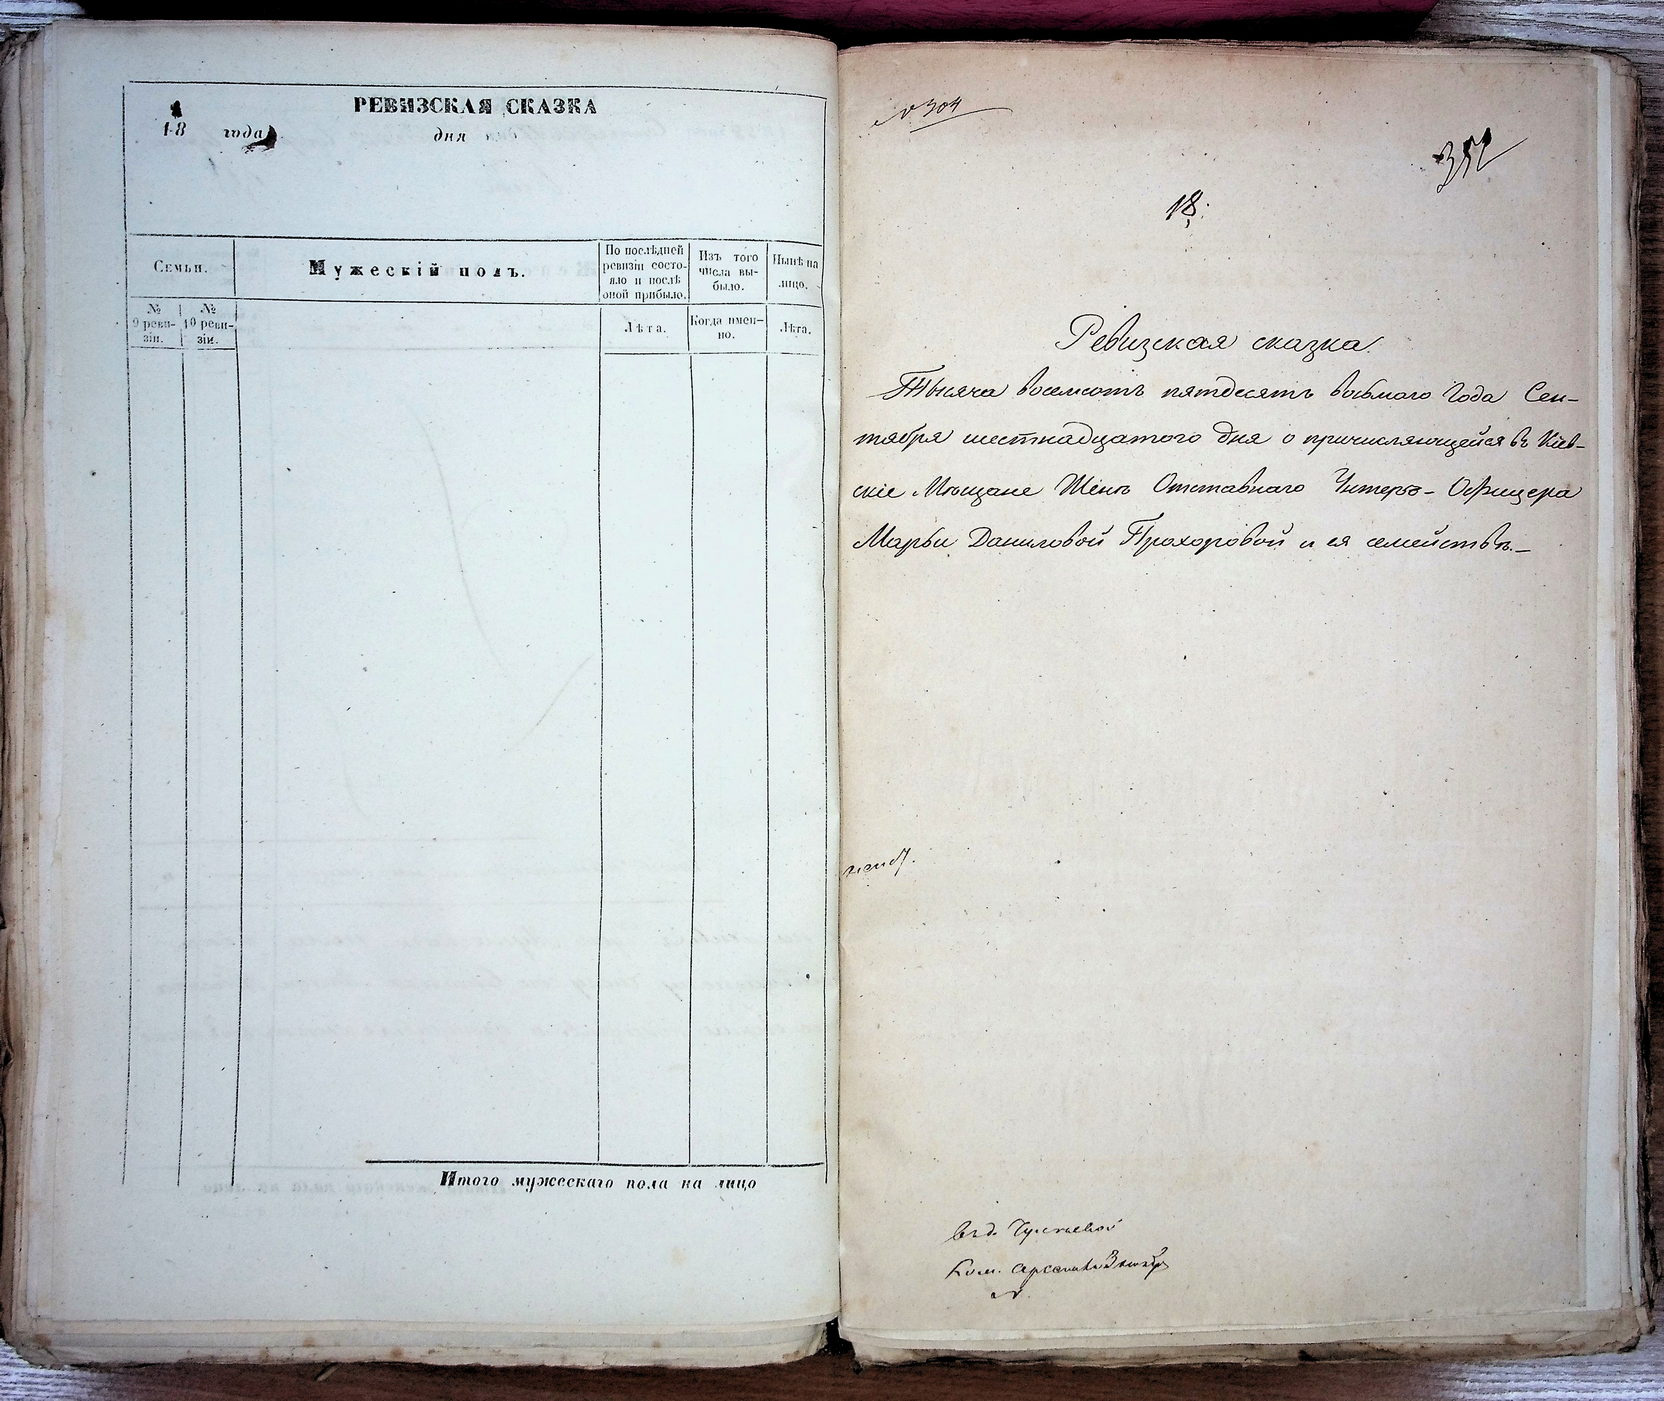 РЕВИЗСКАЯ СКАЗКА
18 года дня
Семьи.
Мужескій полъ.
По послѣдней
ревизіи состо-
яло и послѣ
оной прибыло.
Изъ того
числа вы-
было.
Нынѣ на
лицо.
№
9 реви-
зіи.
№
10 реви-
зіи.
Лѣта.
Когда имен-
но.
Лѣта.
Итого мужескаго пола на лицо
№ 304
352
18.
Ревизская сказка.
Тысяча восемсотъ пятдесятъ восьмаго Года Сен-
тября шестнадцатого дня о причисляющейся въ Кіев-
скіе Мѣщане Женѣ Отставнаго Унтеръ-Офицера
Марьи Даниловой Прохоровой и ея семействѣ.